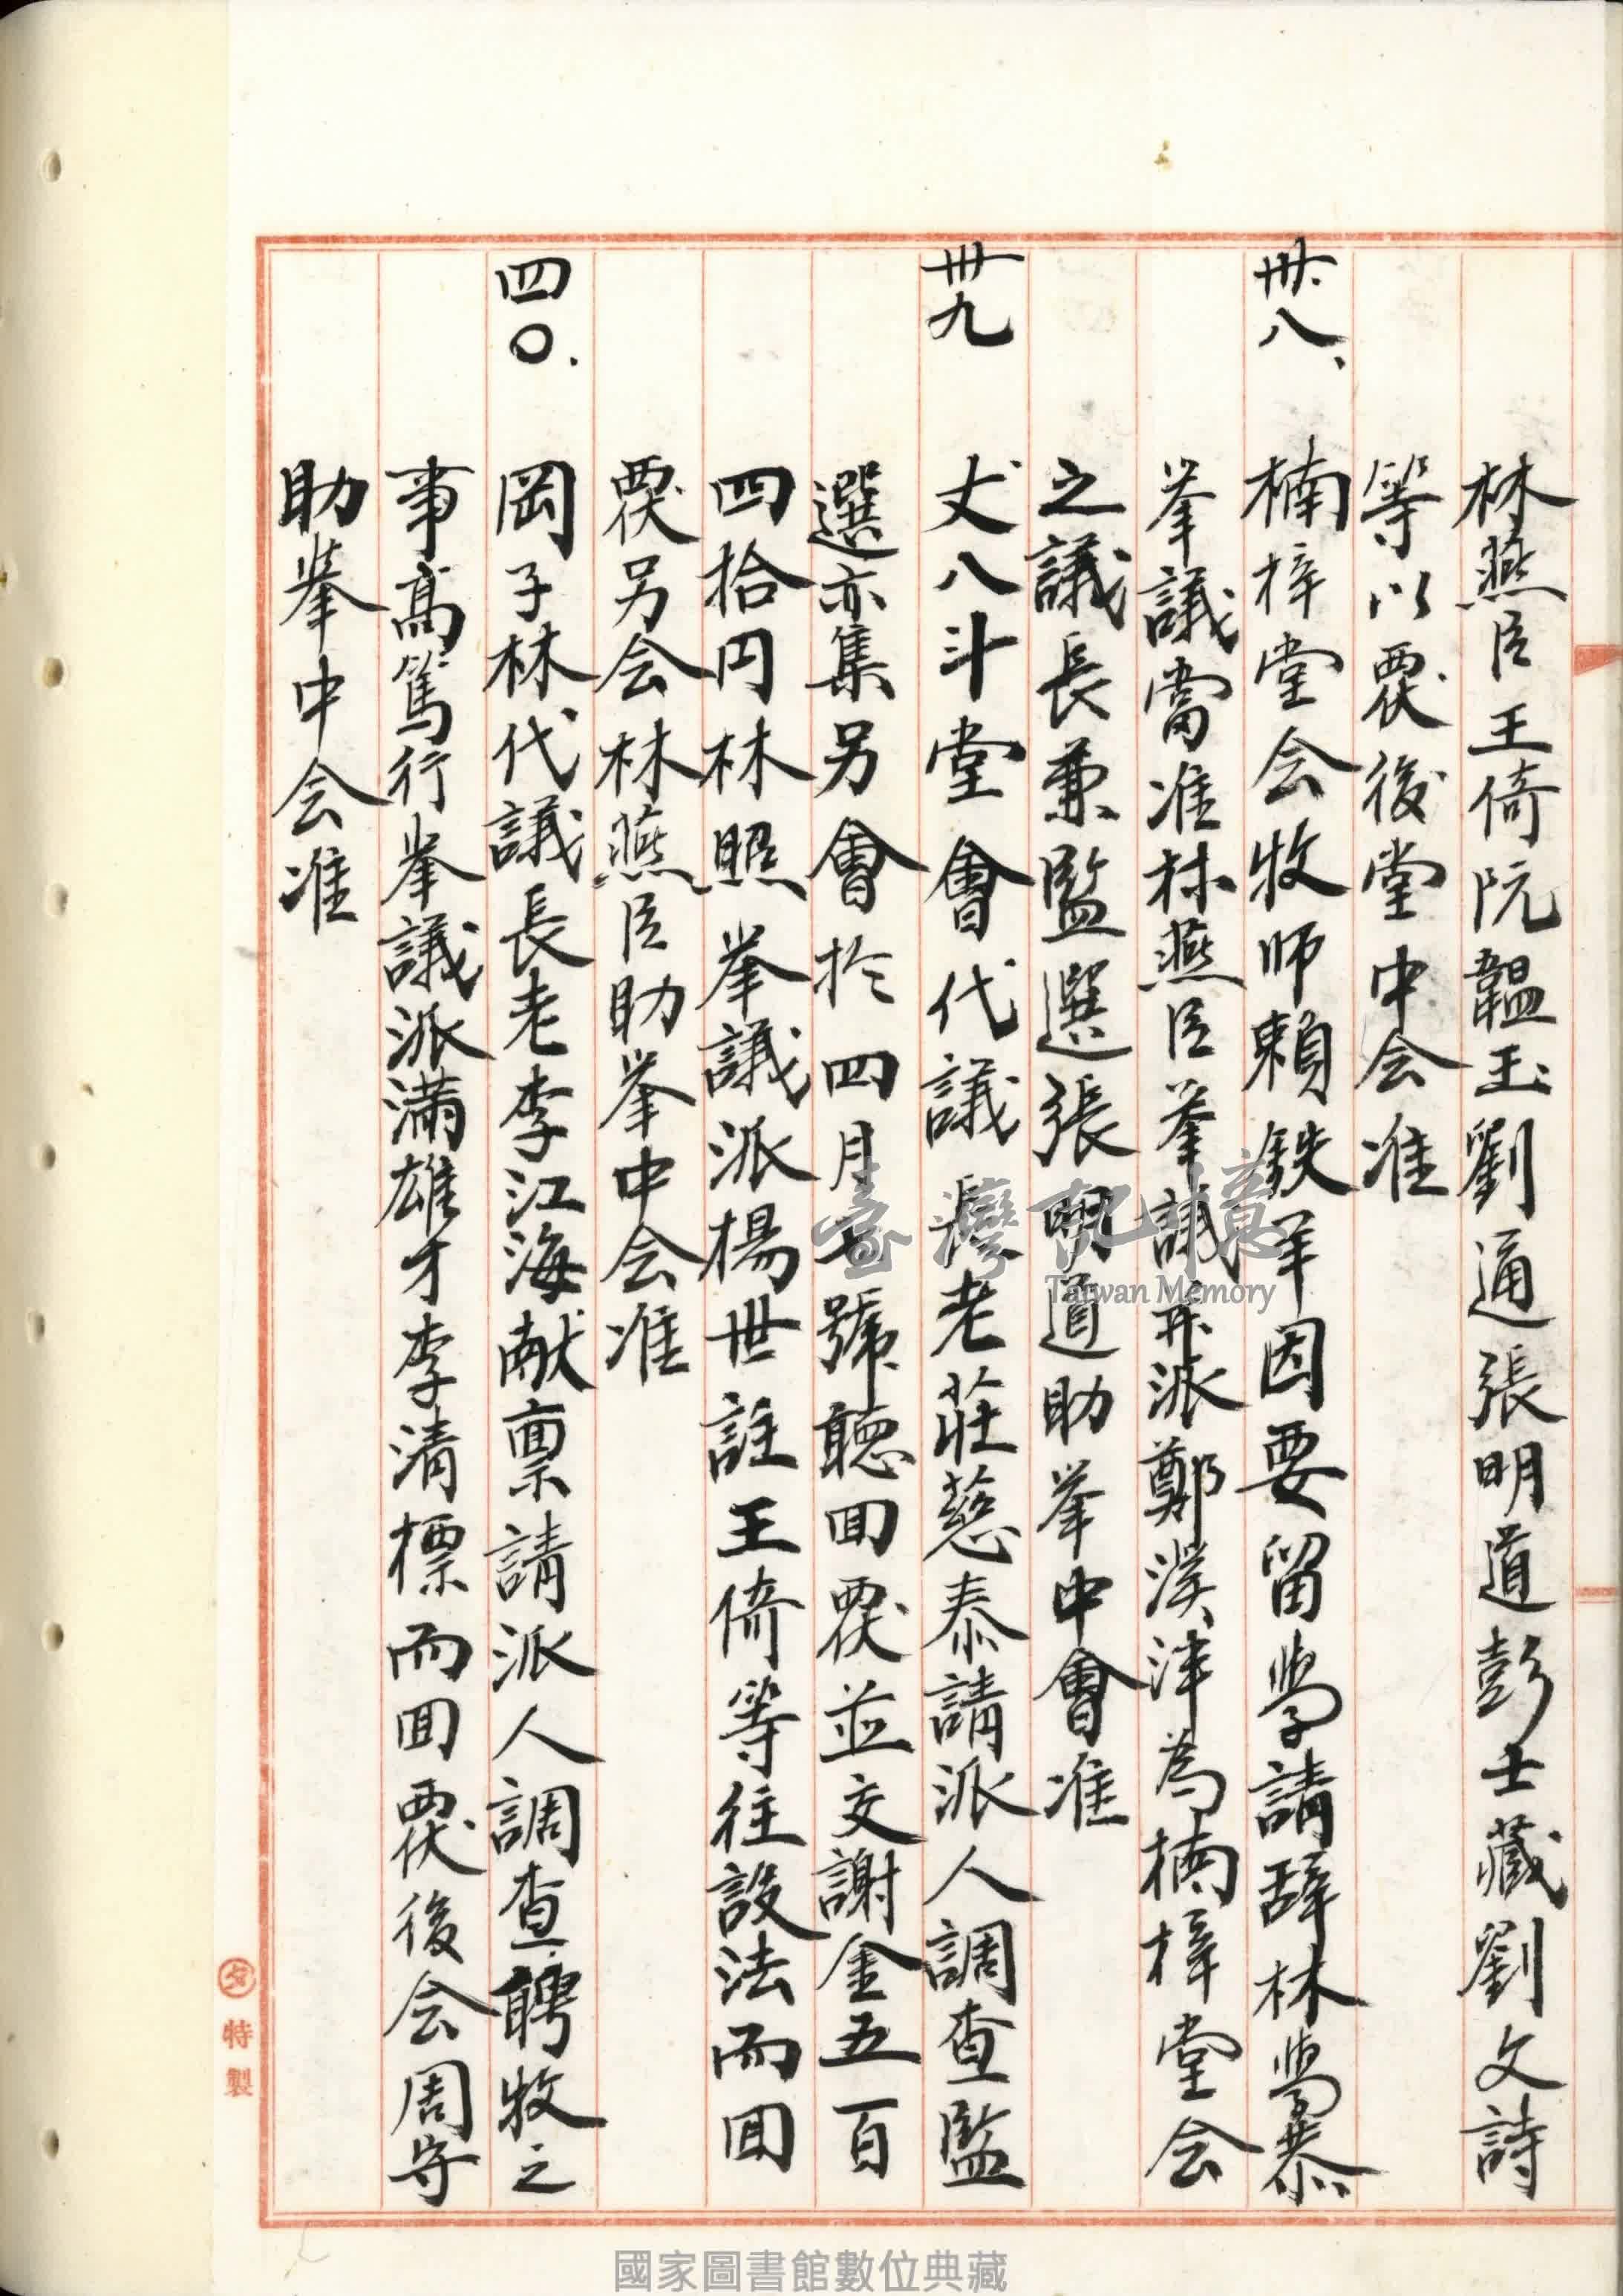 林燕臣王倚阮韞玉劉通張明道彭士藏劉文詩
等以覆後堂中会准
卅八、楠梓堂会牧师賴鉄羊因要留学請辞林学恭
挙議當准林燕臣挙議并派鄭溪津為楠梓堂会
之議長兼監選張明道助挙中會准
卅九 丈八斗堂會代議長老莊慈泰請派人調查監
選亦集另會於四月七號聴回覆並交謝金五百
四拾円林照挙議派楊世註王倚等往設法而回
覆另会林燕臣助挙中会准
四〇. 岡子林代議長老李江海献禀請派人調查聘牧之
事高篤行挙議派満雄才李清標而回覆後会周步
助挙中会准
特製
臺灣記憶
Taiwan Memory
國家圖書館數位典藏